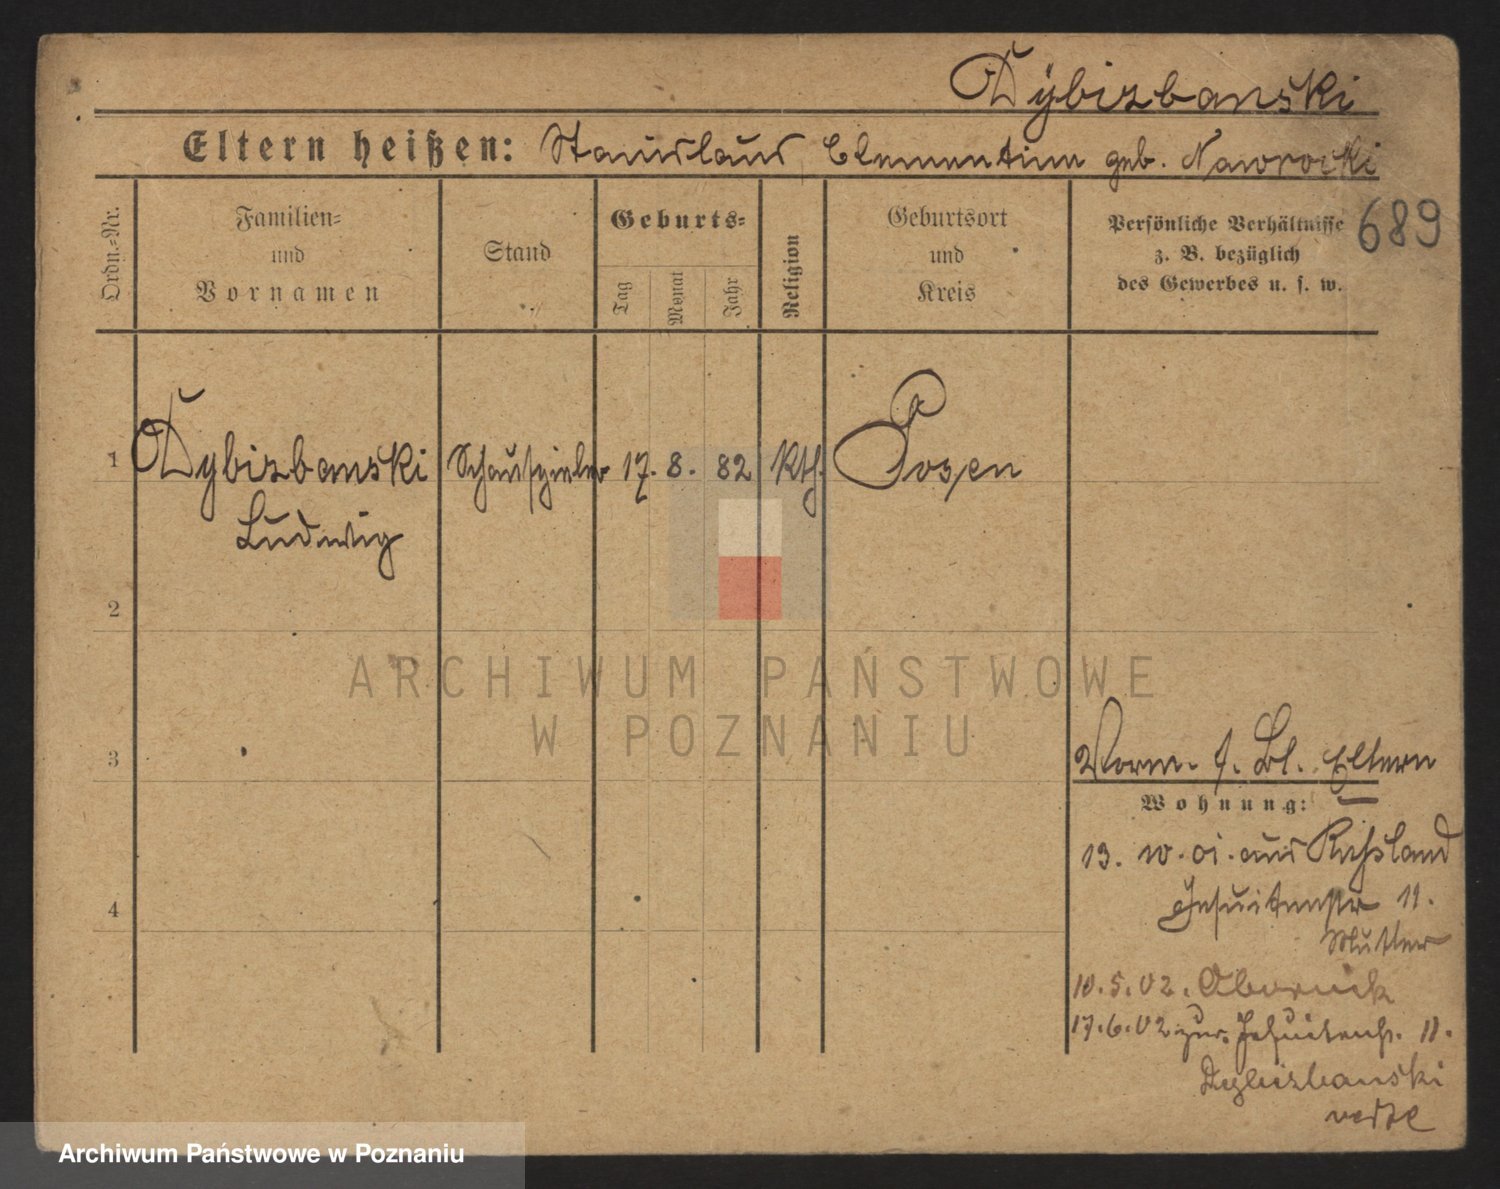 Dybizbanski
Eltern heißen: Stanislaus Clementine geb. Nawrocki
Ordn.-Nr.
Familien-
und
Vornamen
Stand
Geburts-
Tag
Monat
Jahr
Religion
Geburtsort
und
Kreis
Persönliche Verhältnisse
z. B. bezüglich
des Gewerbes u. s. w.
689
1 Dybizbanski Schauspieler 17. 8. 82 Kth. Posen
Ludwig
2
3
Vorm. f. Bl. Eltern
Wohnung:
13. 10. 01. aus Russland
Jesuitenstr 11.
Mutter
4
10.5.02. Obornik
17.6.02 zur. Jesuitenstr. 11.
Dybizbanski
ARCHIWUM PAŃSTWOWE
W POZNANIU
Archiwum Państwowe w Poznaniu